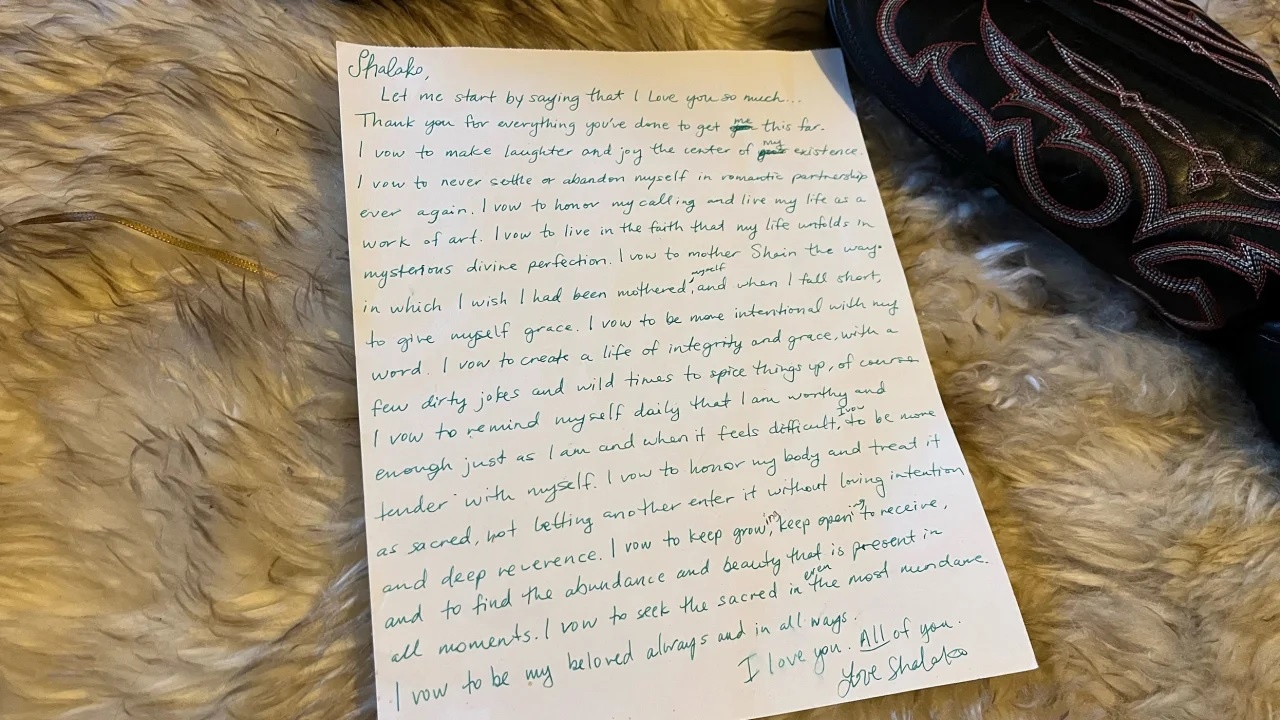 Shalako,
Let me start by saying that I Love you so much...
Thank you for everything you've done to get me this far.
I vow to make laughter and joy the center of my existence.
I vow to never settle or abandon myself in romantic partnership
ever again. I vow to honor my calling and live my life as a
work of art. I vow to live in the faith that my life unfolds in
mysterious divine perfection. I vow to mother Shain the way
in which I wish I had been mothered, myself and when I fall short,
to give myself grace. I vow to be more intentional with my
word. I vow to create a life of integrity and grace, with a
few dirty jokes and wild times to spice things up, of course
I vow to remind myself daily that I am worthy and
enough just as I am and when it feels difficult, I vow to be more
tender with myself. I vow to honor my body and treat it
as sacred, not letting another enter it without loving intention
and deep reverence. I vow to keep growing, keep opening to receive,
and to find the abundance and beauty that is present in
all moments. I vow to seek the sacred in even the most mundane.
I vow to be my beloved always and in all ways.
I love you. All of you.
Love Shalako